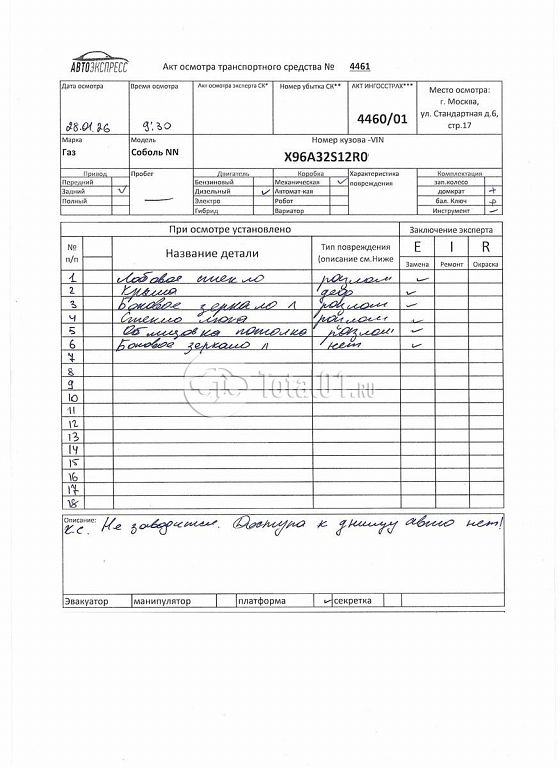 АВТОЭКСПРЕСС
Акт осмотра транспортного средства № 4461
Дата осмотра
Время осмотра
Акт осмотра эксперта СК*
Номер убытка СК**
АКТ ИНГОССТРАХ***
Место осмотра:
г. Москва,
ул. Стандартная д.6,
стр.17
28.01.26
9:30
4460/01
Марка
Модель
Номер кузова -VIN
Газ
Соболь NN
X96A32S12R0
Привод
Пробег
Двигатель
Коробка
Характеристика
повреждения
Комплектация
Передний
Бензиновый
Механическая
зап.колесо
Задний
Дизельный
Автомат-кая
домкрат
Полный
Электро
Робот
бал. Ключ
Гибрид
Вариатор
Инструмент
При осмотре установлено
Заключение эксперта
№
п/п
Название детали
Тип повреждения
(описание см.Ниже
E I R
Замена Ремонт Окраска
1 Лобовое стекло разлом
2 Крыша деф
3 Боковое зеркало л разлом
4 Стекло люка разлом
5 Облицовка потолка разлом
6 Боковое зеркало п нет
7
8
9
10
11
12
13
14
15
16
17
18
Total01.RU
Описание:
К.С. Не заводится. Доступа к днищу авто нет!
Эвакуатор манипулятор платформа секретка